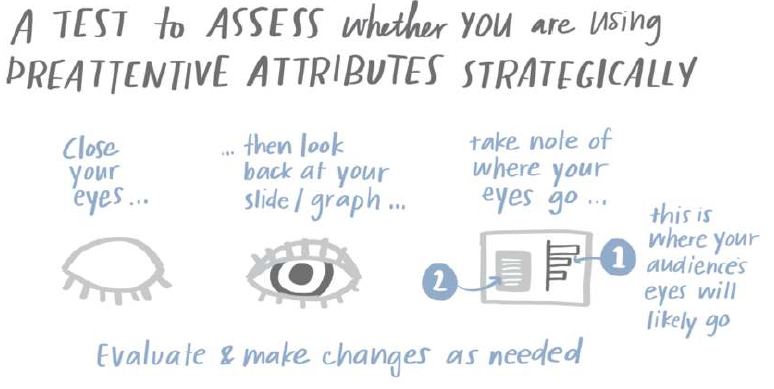 A TEST to ASSESS whether YOU are using
PREATTENTIVE ATTRIBUTES STRATEGICALLY
Close
your
eyes...
... then look
back at your
slide/graph ...
take note of
where your
eyes go ...
1
2
this is
where your
audience's
eyes will
likely go
Evaluate & make changes as needed